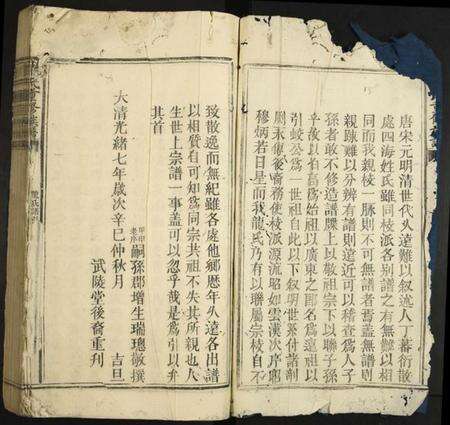 唐宋元明清世代久遠難以叙述人丁蕃衍散
處四海姓氏雖同枝派各別譜之有無艷以相
同而我親枝一脉則不可無譜者焉葢無譜則
親踈難以分辨有譜則遠近可以稽查爲人子
孫者敢不修造譜牒上以敬祖宗下以聯子孫
乎故以伯高爲始祖以廣東之郎名爲遠祖以
引蛟公爲一世祖自此以下叙明世系付諸剞
劂永傳後裔務使枝派源流昭如雲漢次序昭
穆炳若日星而我龍氏乃有以聯屬宗枝自不
致散逸而無紀雖各處他鄉歷年久遠各出譜
以相質自可知爲同宗共祖不失其所親也人
生世上宗譜一事葢可以忽乎哉是爲引以弁
其首
嗣孫郡增生瑞璁敬撰
大清光緒七年歲次辛巳仲秋月 吉旦
武陵堂後裔重刋